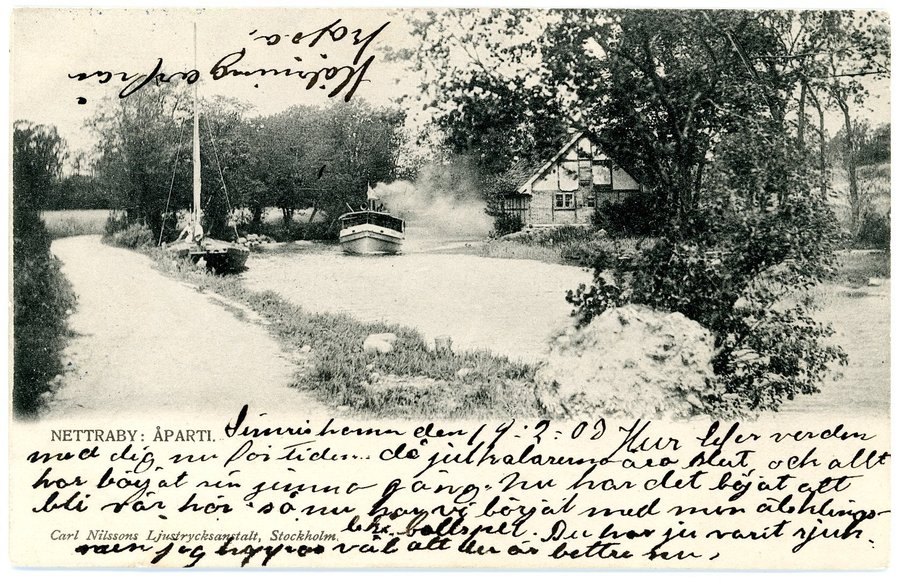 Hälsning från
Rosa.
NETTRABY: ÅPARTI.
Simrishamn den 19:2-03 Hur lefver verden
med dig nu för tiden... då julkalaserna äro slut, och allt
har böjat sin jemna gång. nu har det böjat att
bli vår här så nu har vi börjat med men älsklings-
Carl Nilssons Ljustrycksanstalt, Stockholm.
lek bollspel. Du har ju varit sjuk.
men jag hoppas väl att der är bettre nu,